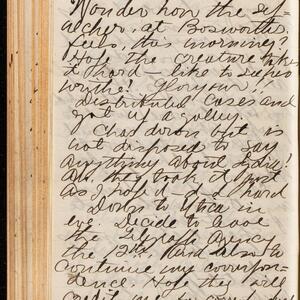 Wonder how the sef-
at Bosworth
feels, this morning?
Hope the creature takes
it hard – like to see
Glorious!!
Distributed cases and
got up a galley.
Chas down but is
not disposed to say
anything about
All they took it just
as I hoped – hard
Down to Utica in
eve. Decide to leave
the Telegraph Agency
the 12th, and also to
continue my correspon-
dence. Hope they will